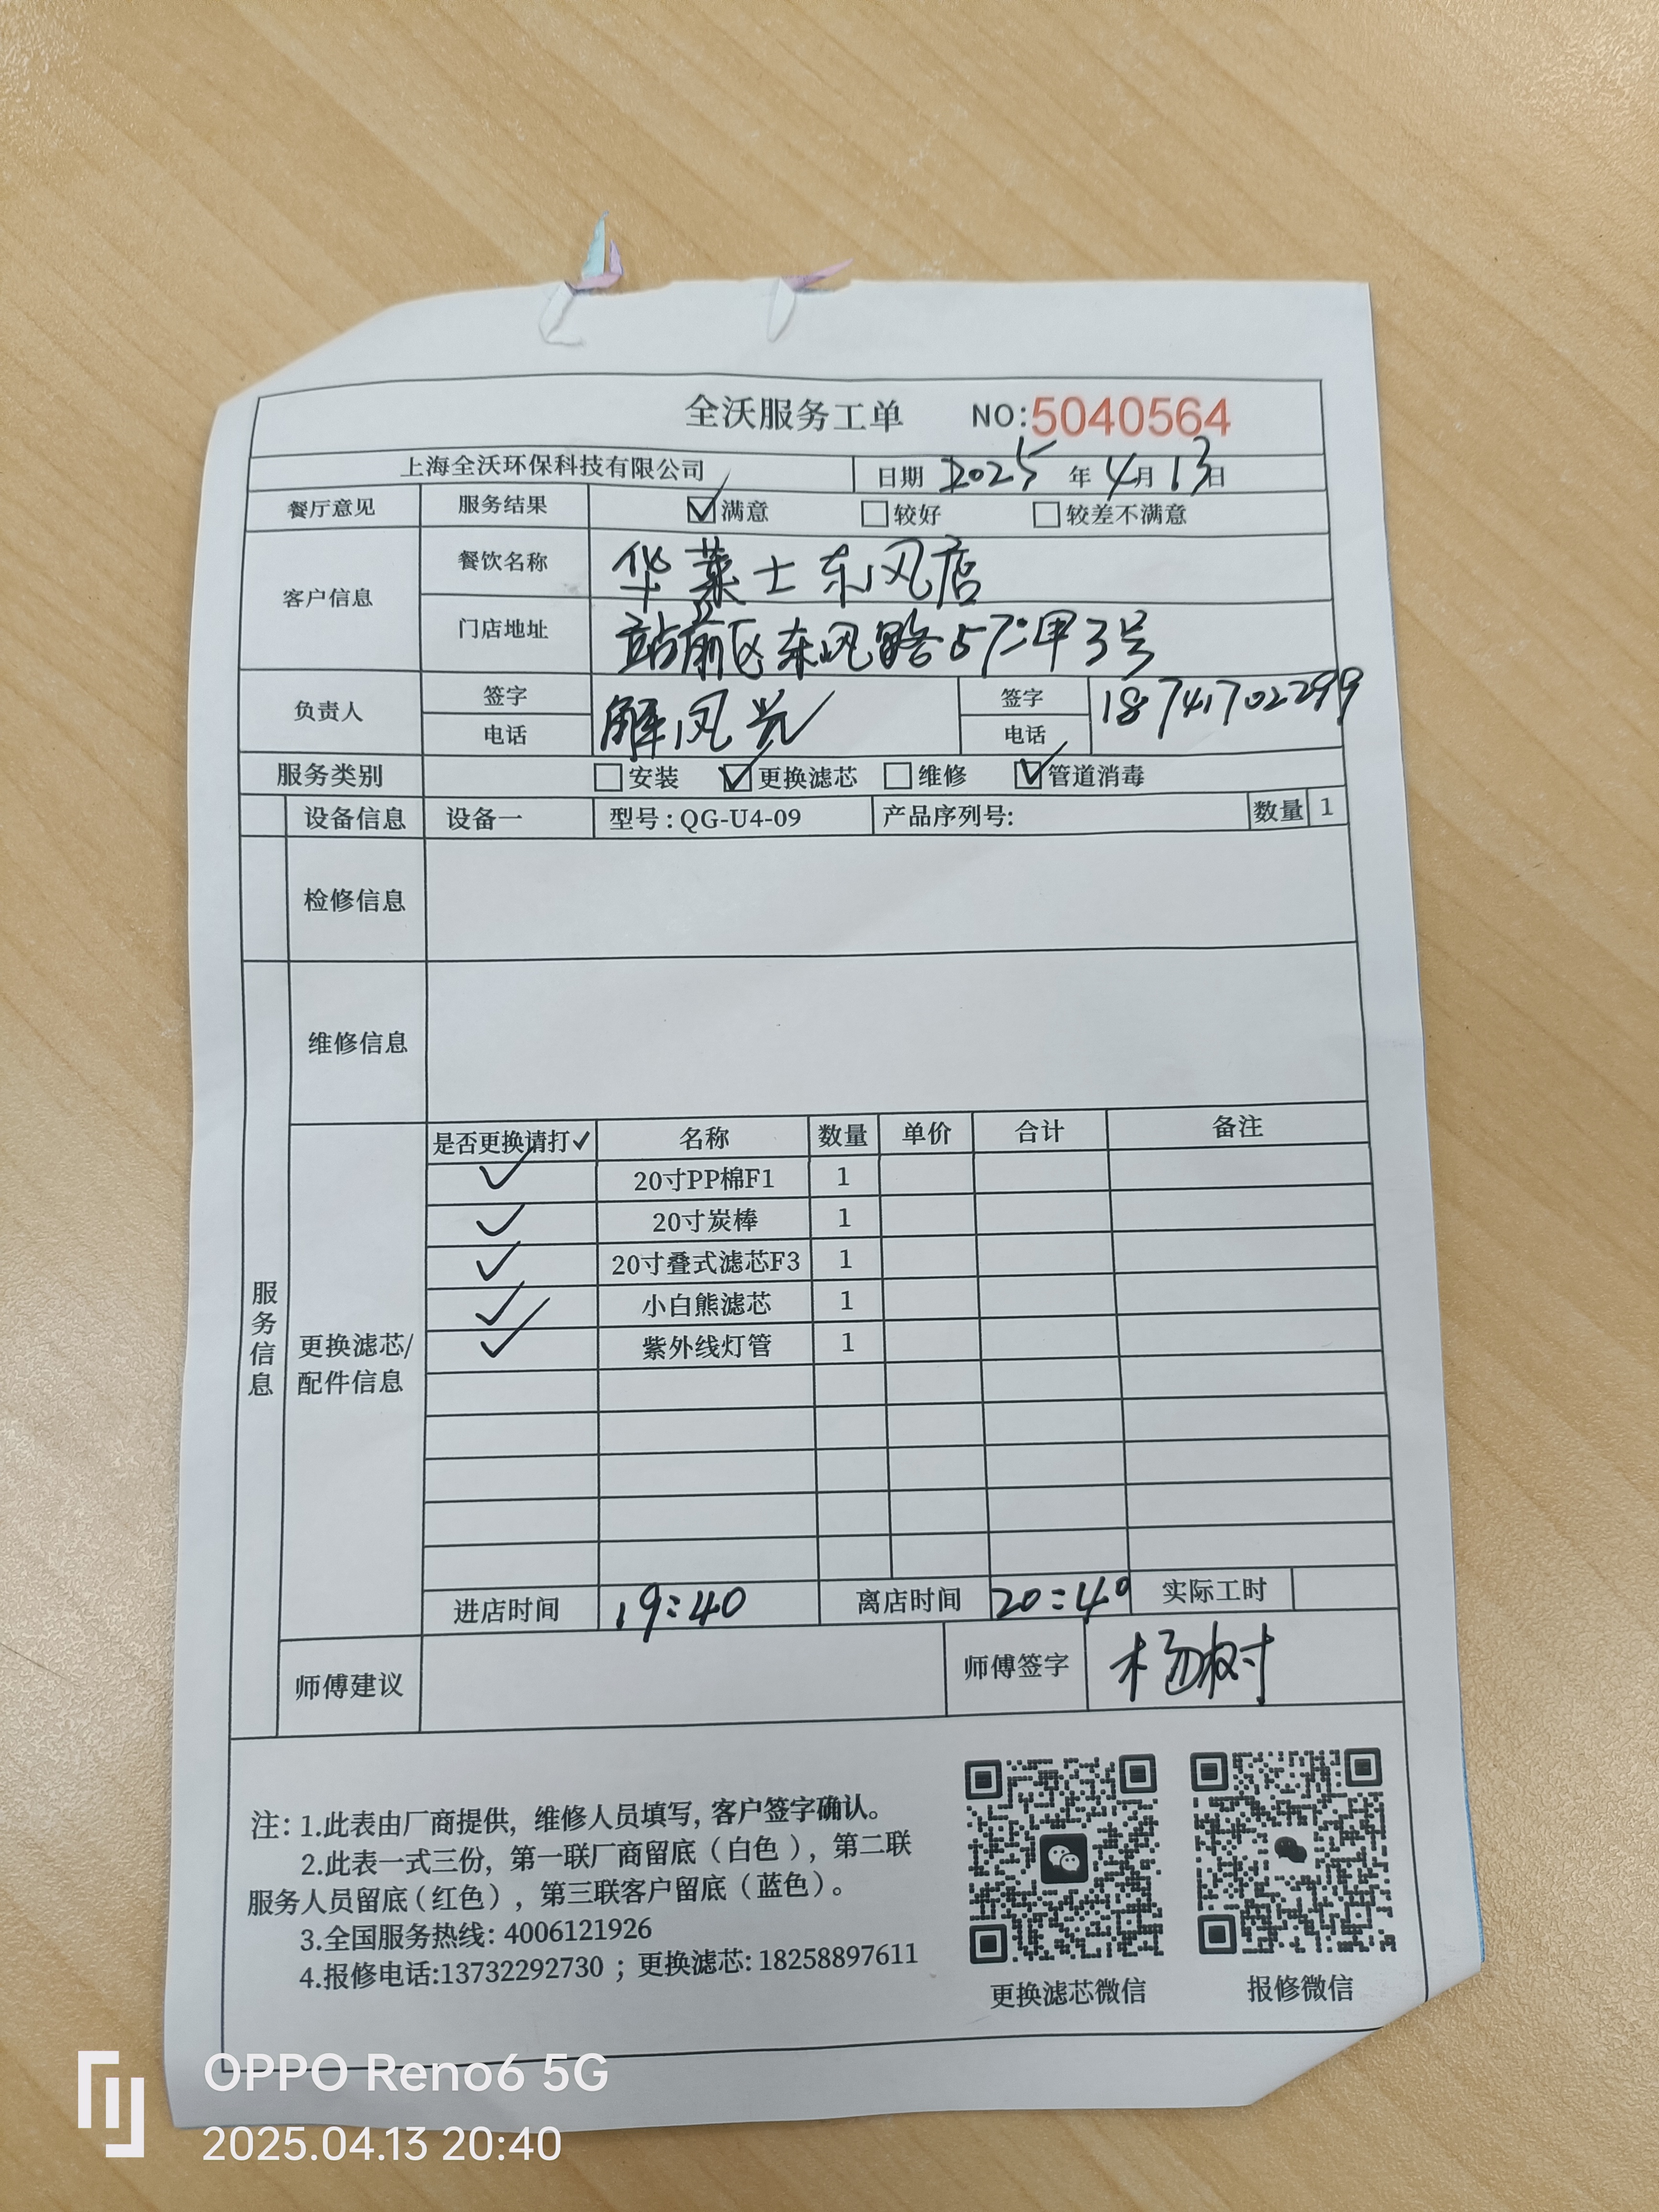 全沃服务工单 NO:5040564
上海全沃环保科技有限公司 日期 2025 年 4月 13日
餐厅意见 服务结果 ☑满意 □较好 □较差不满意
客户信息 餐饮名称 华莱士东风店
门店地址 站前区东风路57-甲3号
负责人 签字 解凤 签字 18741702299
电话 电话
服务类别 □安装 ☑更换滤芯 □维修 ☑管道消毒
设备信息 设备一 型号:QG-U4-09 产品序列号: 数量 1
检修信息
维修信息
服务信息
更换滤芯/
配件信息
是否更换请打✓ 名称 数量 单价 合计 备注
✓ 20寸PP棉F1 1
✓ 20寸炭棒 1
✓ 20寸叠式滤芯F3 1
✓ 小白熊滤芯 1
✓ 紫外线灯管 1
进店时间 19:40 离店时间 20:40 实际工时
师傅建议 师傅签字 杨树
注: 1.此表由厂商提供, 维修人员填写, 客户签字确认。
2.此表一式三份, 第一联厂商留底(白色), 第二联
服务人员留底(红色), 第三联客户留底(蓝色)。
3.全国服务热线: 4006121926
4.报修电话:13732292730 ; 更换滤芯: 18258897611
更换滤芯微信 报修微信
OPPO Reno6 5G
2025.04.13 20:40